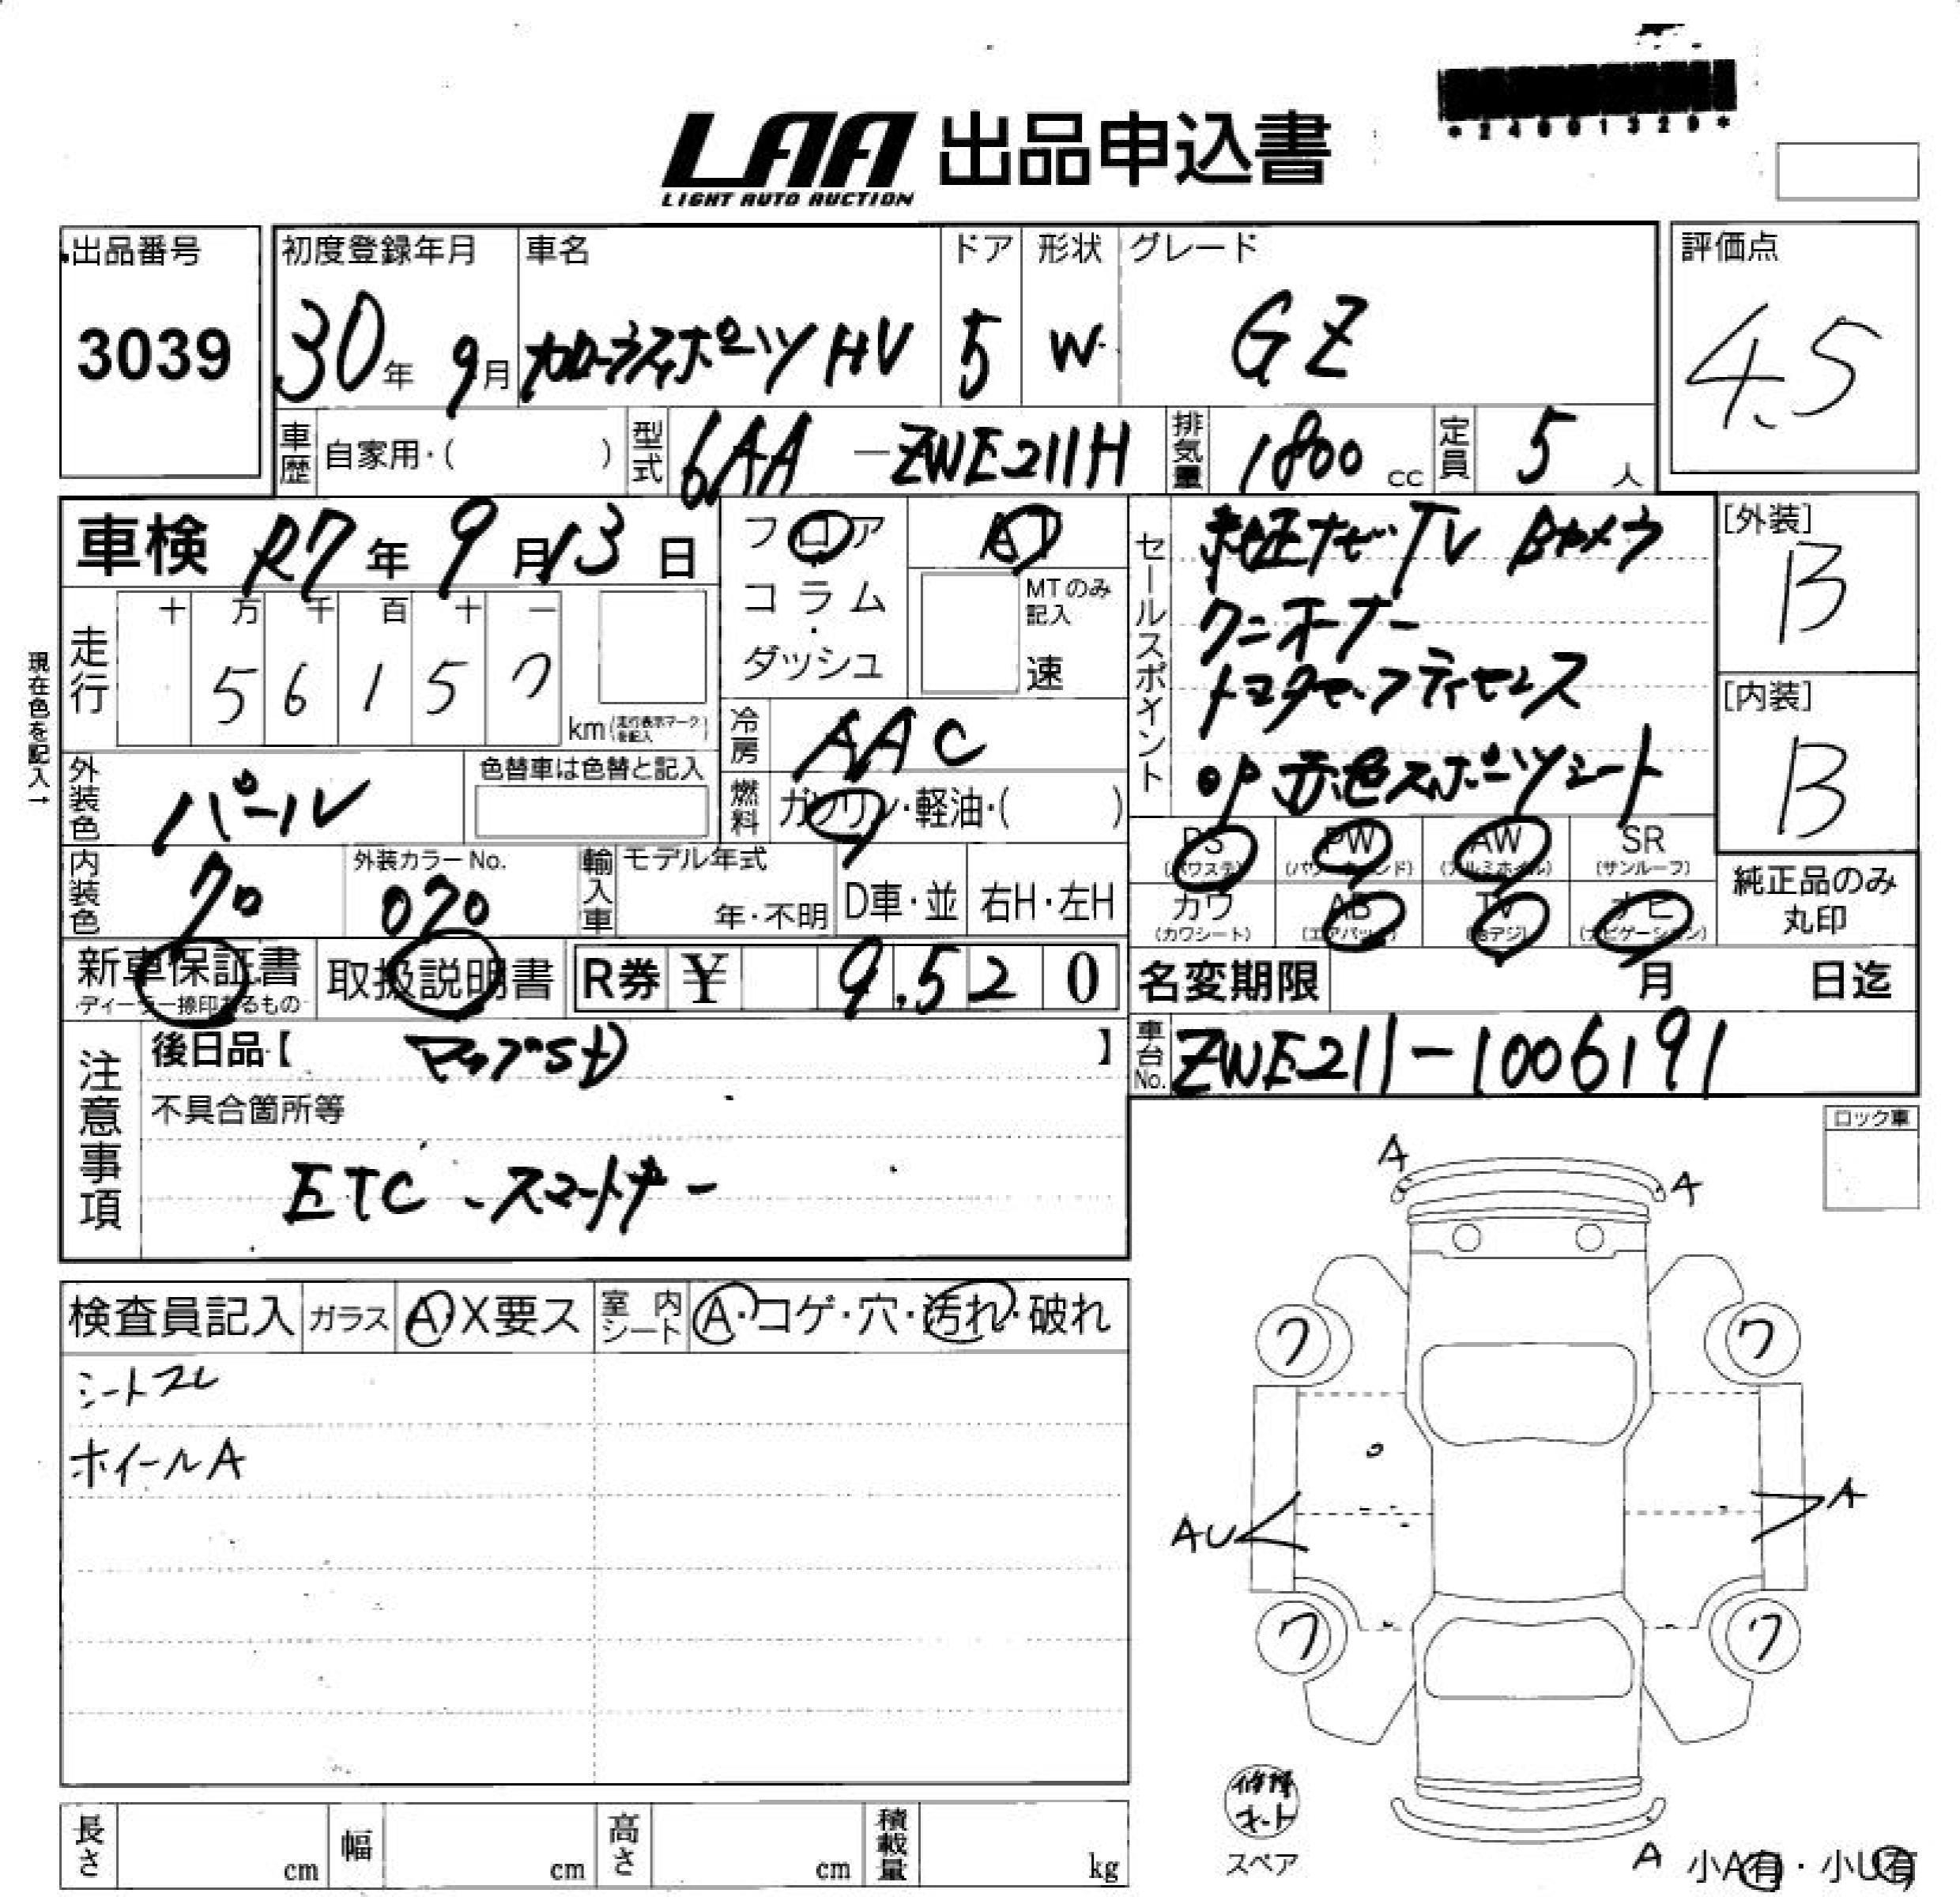 *24001329*
LAA 出品申込書
LIGHT AUTO AUCTION
出品番号
3039
初度登録年月
30年 9月
車名
カローラスポーツ HV
ドア
5
形状
W
グレード
GZ
評価点
4.5
車歴 自家用・( )
型式 6AA-ZWE211H
排気量 1800 cc
定員 5 人
車検 R7年 9月 13日
フロア AT
コラム・ダッシュ
MTのみ記入
速
走行
十 万 千 百 十 一
5 6 1 5 7
km (走行表示マークを記入)
現在色を記入→
冷房 AAC
燃料 ガソリン・軽油・( )
外装色 パール
色替車は色替と記入
内装色 クロ
外装カラーNo. 070
輸入車 モデル年式
年・不明
D車・並 右H・左H
セールスポイント
純正ナビ TV Bカメラ
ワンオーナー
トヨタセーフティセンス
OP 赤色スポーツシート
[外装]
B
[内装]
B
PS (パワステ) PW (パワーウィンド) AW (アルミホイル) SR (サンルーフ)
カワ (カワシート) AB (エアバッグ) TV (地デジ) ナビ (ナビゲーション)
純正品のみ
丸印
新車保証書
ディーラー捺印あるもの
取扱説明書
R券 ¥ 9,520
名変期限 月 日迄
車台No. ZWE211-1006191
注意事項
後日品【 マップSD 】
不具合箇所等
ETC・スマートキー
ロック車
検査員記入 ガラス A・X要ス 室内シート A・コゲ・穴・汚れ・破れ
シートスレ
ホイールA
A
A
ワ ワ
AU
A
ワ ワ
修理キット
スペア
A 小A有・小U有
長さ cm 幅 cm 高さ cm 積載量 kg